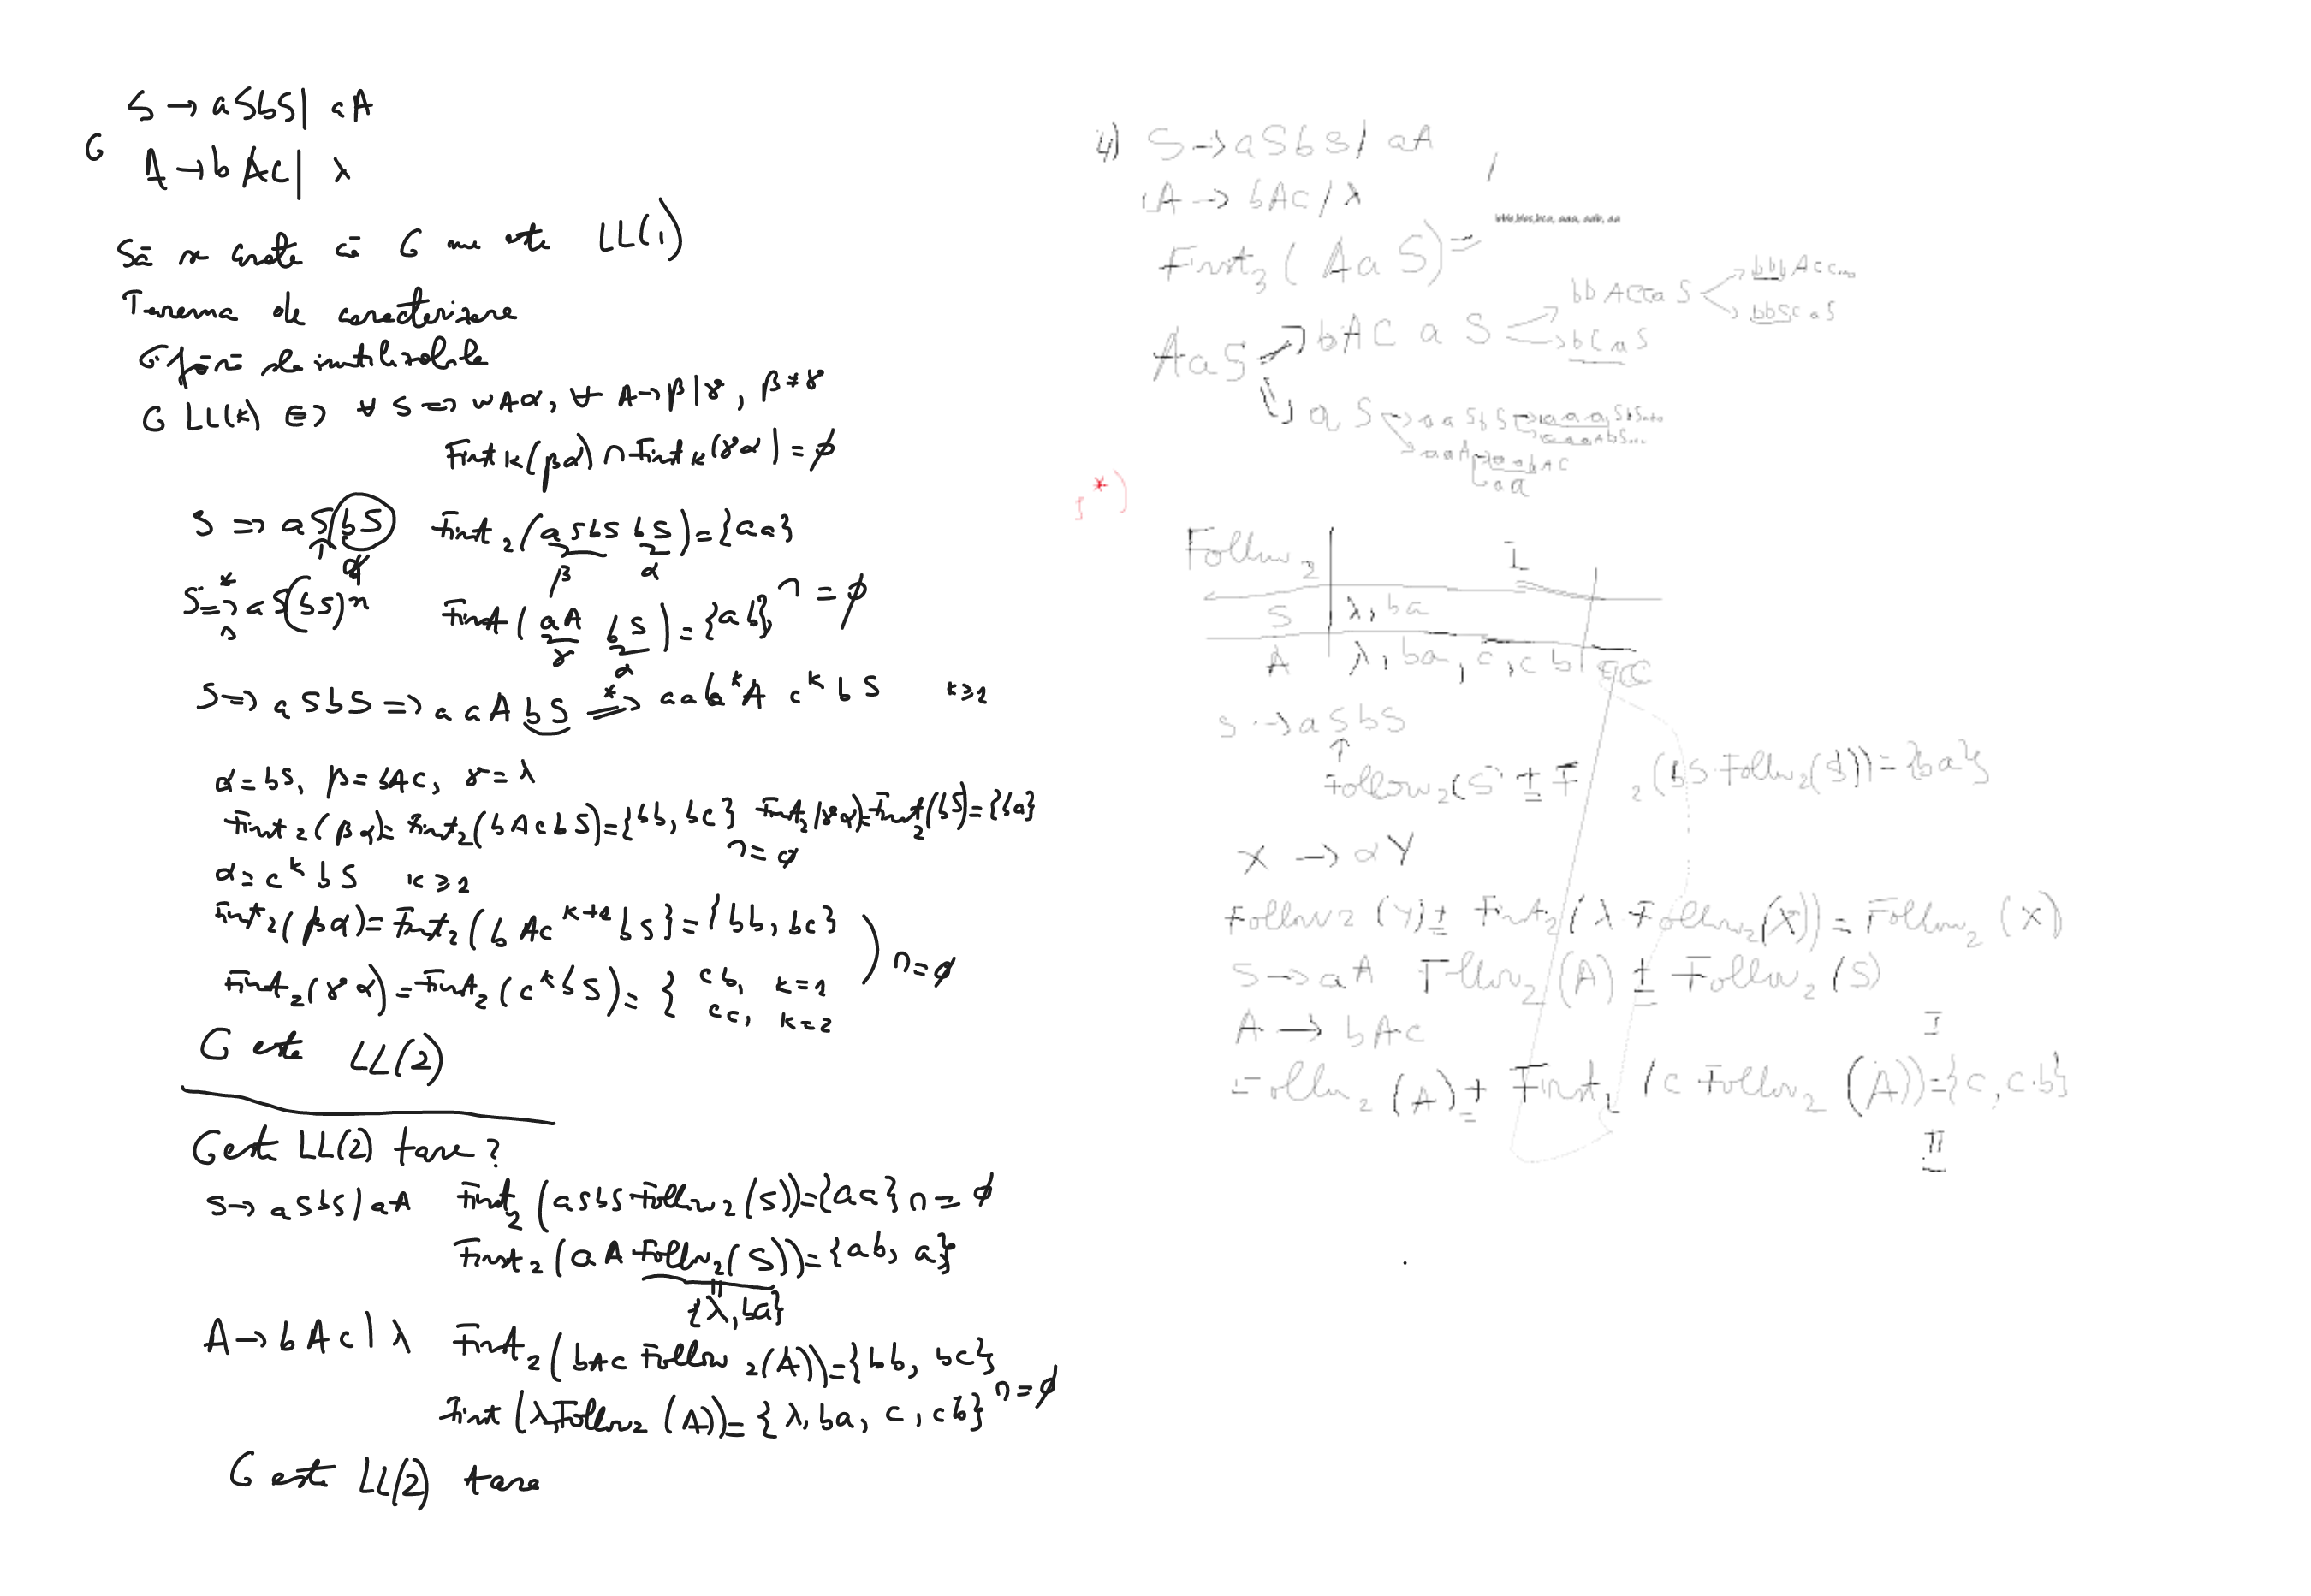 S → aSbS | aA
G
A → bAc | λ
Să se arate că G nu este LL(1)
Teorema de caracterizare
G fără sb inutilizabile
G LL(k) ⇔ ∀ S ⇒ wAα, ∀ A → β|γ, β≠γ
First k(βα) ∩ First k(γα) = ∅
S ⇒ aSbS First 2(aSbS bS) = {aa}
α β α
S ⇒* aS(bS)^n First(aA bS) = {ab} ∩ = ∅
γ α
S ⇒ aSbS ⇒ aaAbS ⇒* aab^kA c^k bS k≥1
α = bS, β = bAc, γ = λ
First 2(βα) = First 2(bAcbS) = {bb, bc} First 2(γα) = First 2(bS) = {ba}
∩ = ∅
α = c^k bS k≥1
First 2(βα) = First 2(bAc^k+1 bS} = {bb, bc}
∩ = ∅
First 2(γα) = First 2(c^k bS) = { cb, k=1
cc, k=2
G este LL(2)
G este LL(2) tare?
S → aSbS | aA First 2(aSbS Follow 2(S)) = {aa} ∩ = ∅
First 2(aA Follow 2(S)) = {ab, a}
{λ, ba}
A → bAc | λ First 2(bAc Follow 2(A)) = {bb, bc}
First(λ Follow 2(A)) = {λ, ba, c, cb} ∩ = ∅
G este LL(2) tare
4) S → aSbS | aA
A → bAc / λ
First 3(AaS) =
bbb, bbc, bca, aaa, aab, aa
AaS → bAC a S → bbACCaS → bbbAcc...
bbScaS
bCaS
aS → aaSbS → aaaSbS...
aaaAbS...
aaA → aabAC
aa
*)
Follow 2 I
S λ, ba
A λ, ba, c, cb CC
S → aSbS
↑
Follow 2(S ± F 2(bS Follow 2(S)) = {ba}
X → αY
Follow 2(Y) ± First 2(λ Follow 2(X)) = Follow 2(X)
S → aA Follow 2(A) ± Follow 2(S)
A → bAc I
Follow 2(A) ± First (c Follow 2(A)) = {c, c·b}
II